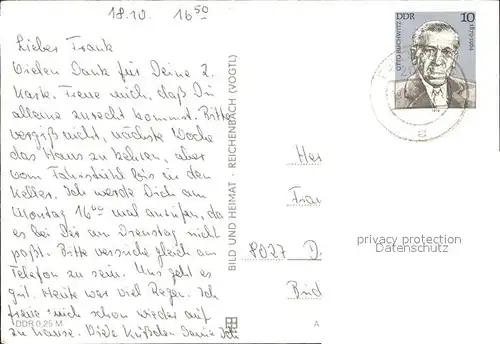 18.10. 16⁵⁰
Lieber Frank
Vielen Dank für Deine 2.
Karte. Freue mich, daß Du
alleine zurecht kommst. Bitte
vergiß nicht, nächste Woche
das Haus zu kehren, aber
vom Fahrstuhl bis in den
Keller. Ich werde Dich am
Montag 16⁰⁰ mal anrufen, da
es bei Dir am Dienstag nicht
paßt. Bitte versuche gleich am
Telefon zu sein. Uns geht es
gut. Heute war viel Regen. Ich
freue mich schon wieder auf
zu Hause. Dicke Küßchen Deine
DDR 0,25 M
BILD UND HEIMAT · REICHENBACH (VOGTL)
A
DDR 10
OTTO BUCHWITZ
1879-1964
Her
Fran
8027 D
Bid
privacy protection
Datenschutz